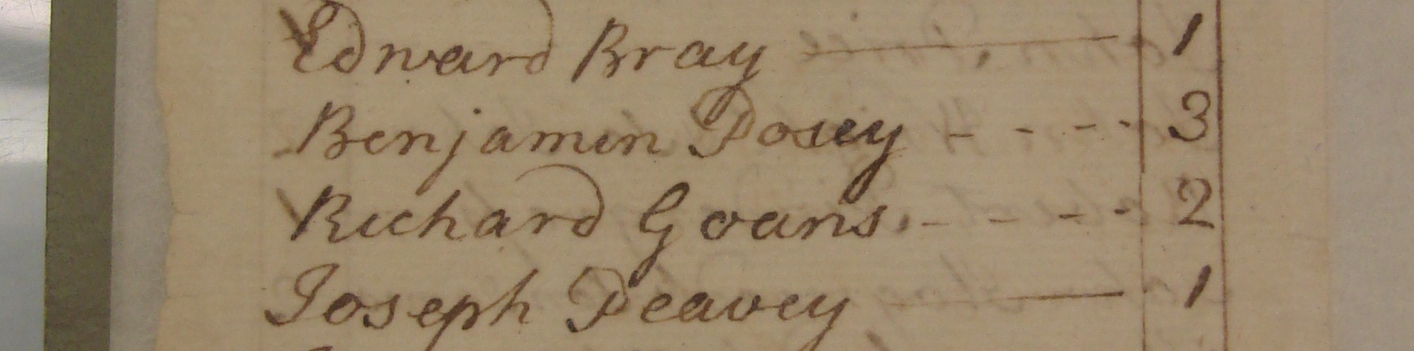 Edward Bray ——— 1
Benjamin Posey - - - - 3
Richard Goans - - - - 2
Joseph Peavey ——— 1